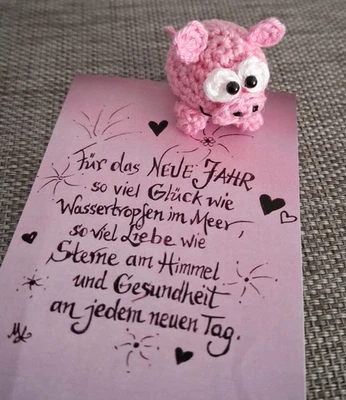 Für das NEUE JAHR
so viel Glück wie
Wassertropfen im Meer,
so viel Liebe wie
Sterne am Himmel
und Gesundheit
an jedem neuen Tag.